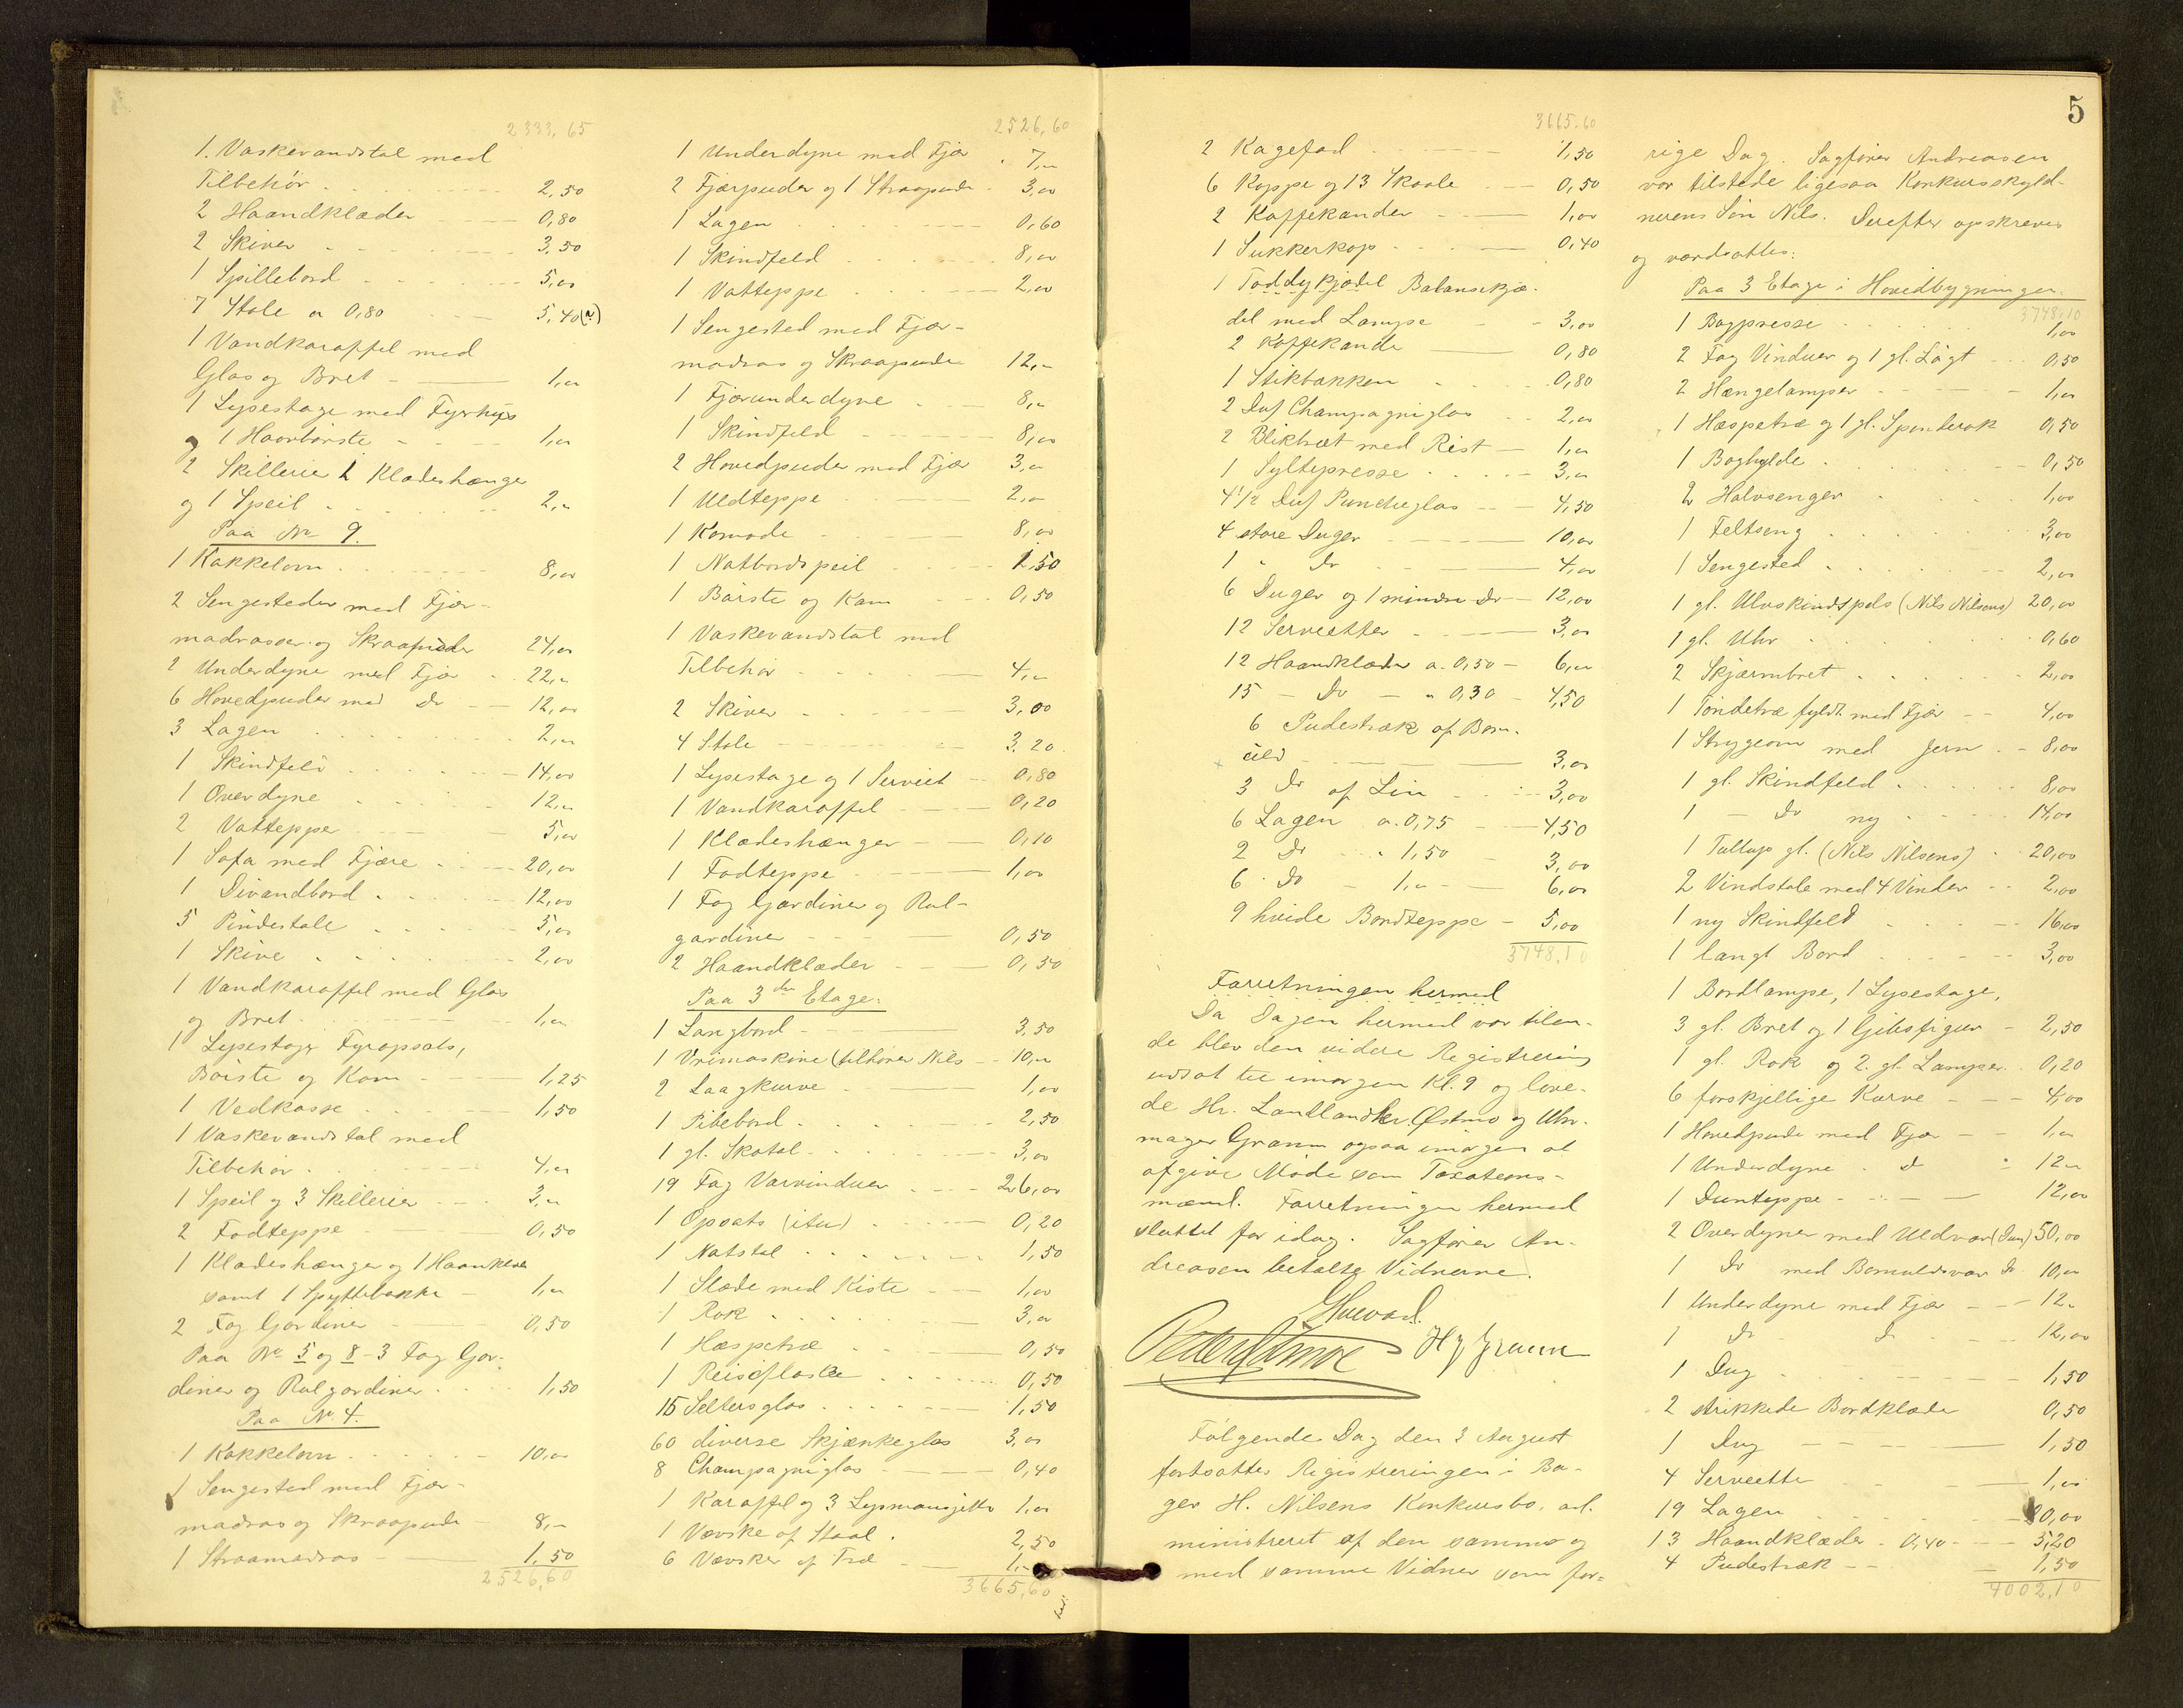 2333,65
1. Vaskevandstel med
Tilbehør 2,50
2 Haandklæder 0,80
2 Skiver 3,50
1 Spillebord 5,00
7 Stole a 0,80 5,40 (?)
1 Vandkaraffel med
Glas og Bret 1,00
1 Lysestage med Fyrhus
og 1 Haarbørste 1,00
2 Skillerier 1 Klædeshænger
og 1 Speil 2,00
Paa No 9.
1 Kakkelovn 8,00
2 Sengesteder med Fjær-
madrasser og Skraapuder 24,00
2 Underdyne med Fjær 22,00
6 Hovedpuder med Do 12,00
3 Lagen 2,00
1 Skindfeld 14,00
1 Overdyne 12,00
2 Vatteppe 5,00
1 Sofa med Fjære 20,00
1 Divandbord 12,00
5 Pindestole 5,00
1 Skive 2,00
1 Vandkaraffel med Glas
og Bret 1,00
1 Lysestage Fyropsats,
Børste og Kam 1,25
1 Vedkasse 1,50
1 Vaskevandstel med
Tilbehør 4,00
1 Speil og 3 Skillerier 3,00
2 Fodteppe 0,50
1 Klædeshænger og 1 Haanklæde
samt 1 Spyttebakke 1,00
2 Fag Gardiner 0,50
Paa No 5 og 8 - 3 Fag Gar-
diner og Rulgardiner 1,50
Paa No 4.
1 Kakkelovn 10,00
1 Sengested med Fjær-
madras og Skraapude 8,-
1 Straamadras 1,50
2526,60
2526,60
1 Underdyne med Fjær 7,00
2 Fjærpuder og 1 Straapude 3,00
1 Lagen 0,60
1 Skindfeld 8,00
1 Vatteppe 2,00
1 Sengested med Fjær-
madras og Skraapude 12,00
1 Fjærunderdyne 8,00
1 Skindfeld 8,00
2 Hovedpuder med Fjær 3,00
1 Uldteppe 2,00
1 Komode 8,00
1 Natbordspeil 1,50
1 Børste og Kam 0,50
1 Vaskevandstel med
Tilbehør 4,00
2 Skiver 3,00
4 Stole 3,20
1 Lysestage og 1 Serviet 0,80
1 Vandkaraffel 0,20
1 Klædeshænger 0,10
1 Fodteppe 1,00
1 Fag Gardiner og Rul-
gardiner 0,50
2 Haandklæder 0,50
Paa 3die Etage:
1 Langbord 3,50
1 Vrimaskine (tilhører Nils 10,00
2 Laagkurve 1,00
1 Pibebord 2,50
1 gl. Skatol 3,00
19 Fag Varvinduer 26,00
1 Opsats (itu) 0,20
1 Natstol 1,50
1 Slæde med Kiste 1,00
1 Rok 3,00
1 Hæspetræ 0,50
1 Reiseflaske 0,50
15 Seltersglas 1,50
60 diverse Skjænkeglas 3,00
8 Champagniglas 0,40
1 Karaffel og 3 Lysmansjetter 1,00
1 Vævske af Staal 2,50
6 Vævsker af Træ 1,-
3665,60
5
3665,60
2 Kagefad 1,50
6 Koppe og 13 Skaale 0,50
2 Kaffekander 1,00
1 Sukkerkop 0,40
1 Toddykjedel Balansekje-
del med Lampe 3,00
2 Kaffekande 0,80
1 Stikbakken 0,80
2 Dus Champagniglas 2,00
2 Bliktræt med Rist 1,00
1 Syltepresse 3,00
4 1/2 Dus Puncheglas 4,50
4 store Duger 10,00
1 " Do 4,00
6 Duger og 1 mindre Do 12,00
12 Servietter 3,00
12 Haandklæder a. 0,50 6,00
15 - Do - " 0,30 4,50
6 Pudetræk af Bom-
uld 3,00
3 Do af Lin 3,00
6 Lagen a. 0,75 4,50
2 Do " 1,50 3,00
6 Do - 1,00 6,00
9 hvide Bordteppe 5,00
3748,10
Forretningen hermed
Da Dagen hermed var tilen-
de blev den videre Registrering
udsat til imorgen Kl. 9 og love-
de Hr. Landhandler Østmo og Uhr-
mager Gramm ogsaa imorgen at
afgive Møde som Taxations-
mænd. Forretningen hermed
sluttet for idag. Sagfører An-
dreasen betalte Vidnerne.
Peder Østmoe H. J. Gramm
Følgende Dag den 3 August
fortsattes Registreringen i Ba-
ger H. Nilsens Konkursbo, ad-
ministreret af den samme og
med samme Vidner som for-
rige Dag. Sagfører Andreasen
var tilstede ligesaa Konkursskyld-
nerens Søn Nils. Derefter opskreves
og værdsattes:
Paa 3 Etage i Hovedbygningen.
3748,10
1 Bagpresse 1,00
2 Fag Vinduer og 1 gl. Lygt 0,50
2 Hængelamper 1,00
1 Hæspetræ og 1 gl. Spinderok 0,50
1 Boghylde 0,50
2 Halvsenger 1,00
1 Feltseng 3,00
1 Sengested 2,00
1 gl. Ulveskindspels (Nils Nilsens) 20,00
1 gl. Uhr 0,60
2 Skjærmbret 2,00
1 Tøndetræ fyldt med Fjær 4,00
1 Strygeovn med Jern 8,00
1 gl. Skindfeld 8,00
1 - Do ny 14,00
1 Tullup gl. (Nils Nilsens) 20,00
2 Vindstole med 4 Vinder 2,00
1 ny Skindfeld 16,00
1 langt Bord 3,00
1 Bordlampe, 1 Lysestage,
3 gl. Bret og 1 Gibsfigur 2,50
1 gl. Rok og 2 gl. Lamper 0,20
6 forskjellige Kurve 4,00
1 Hovedpude med Fjær 1,00
1 Underdyne Do 12,00
1 Dunteppe 12,00
2 Overdyner med Uldvar (Dun) 50,00
1 Do med Bomuldsvar Do 10,00
1 Underdyne med Fjær 12,00
1 Do Do 12,00
1 Dug 1,50
2 strikkede Bordklæde 0,50
1 Dug 1,50
4 Serviette 1,00
19 Lagen
13 Haandklæder 0,40 5,20
4 Pudestræk 1,50
4002,10